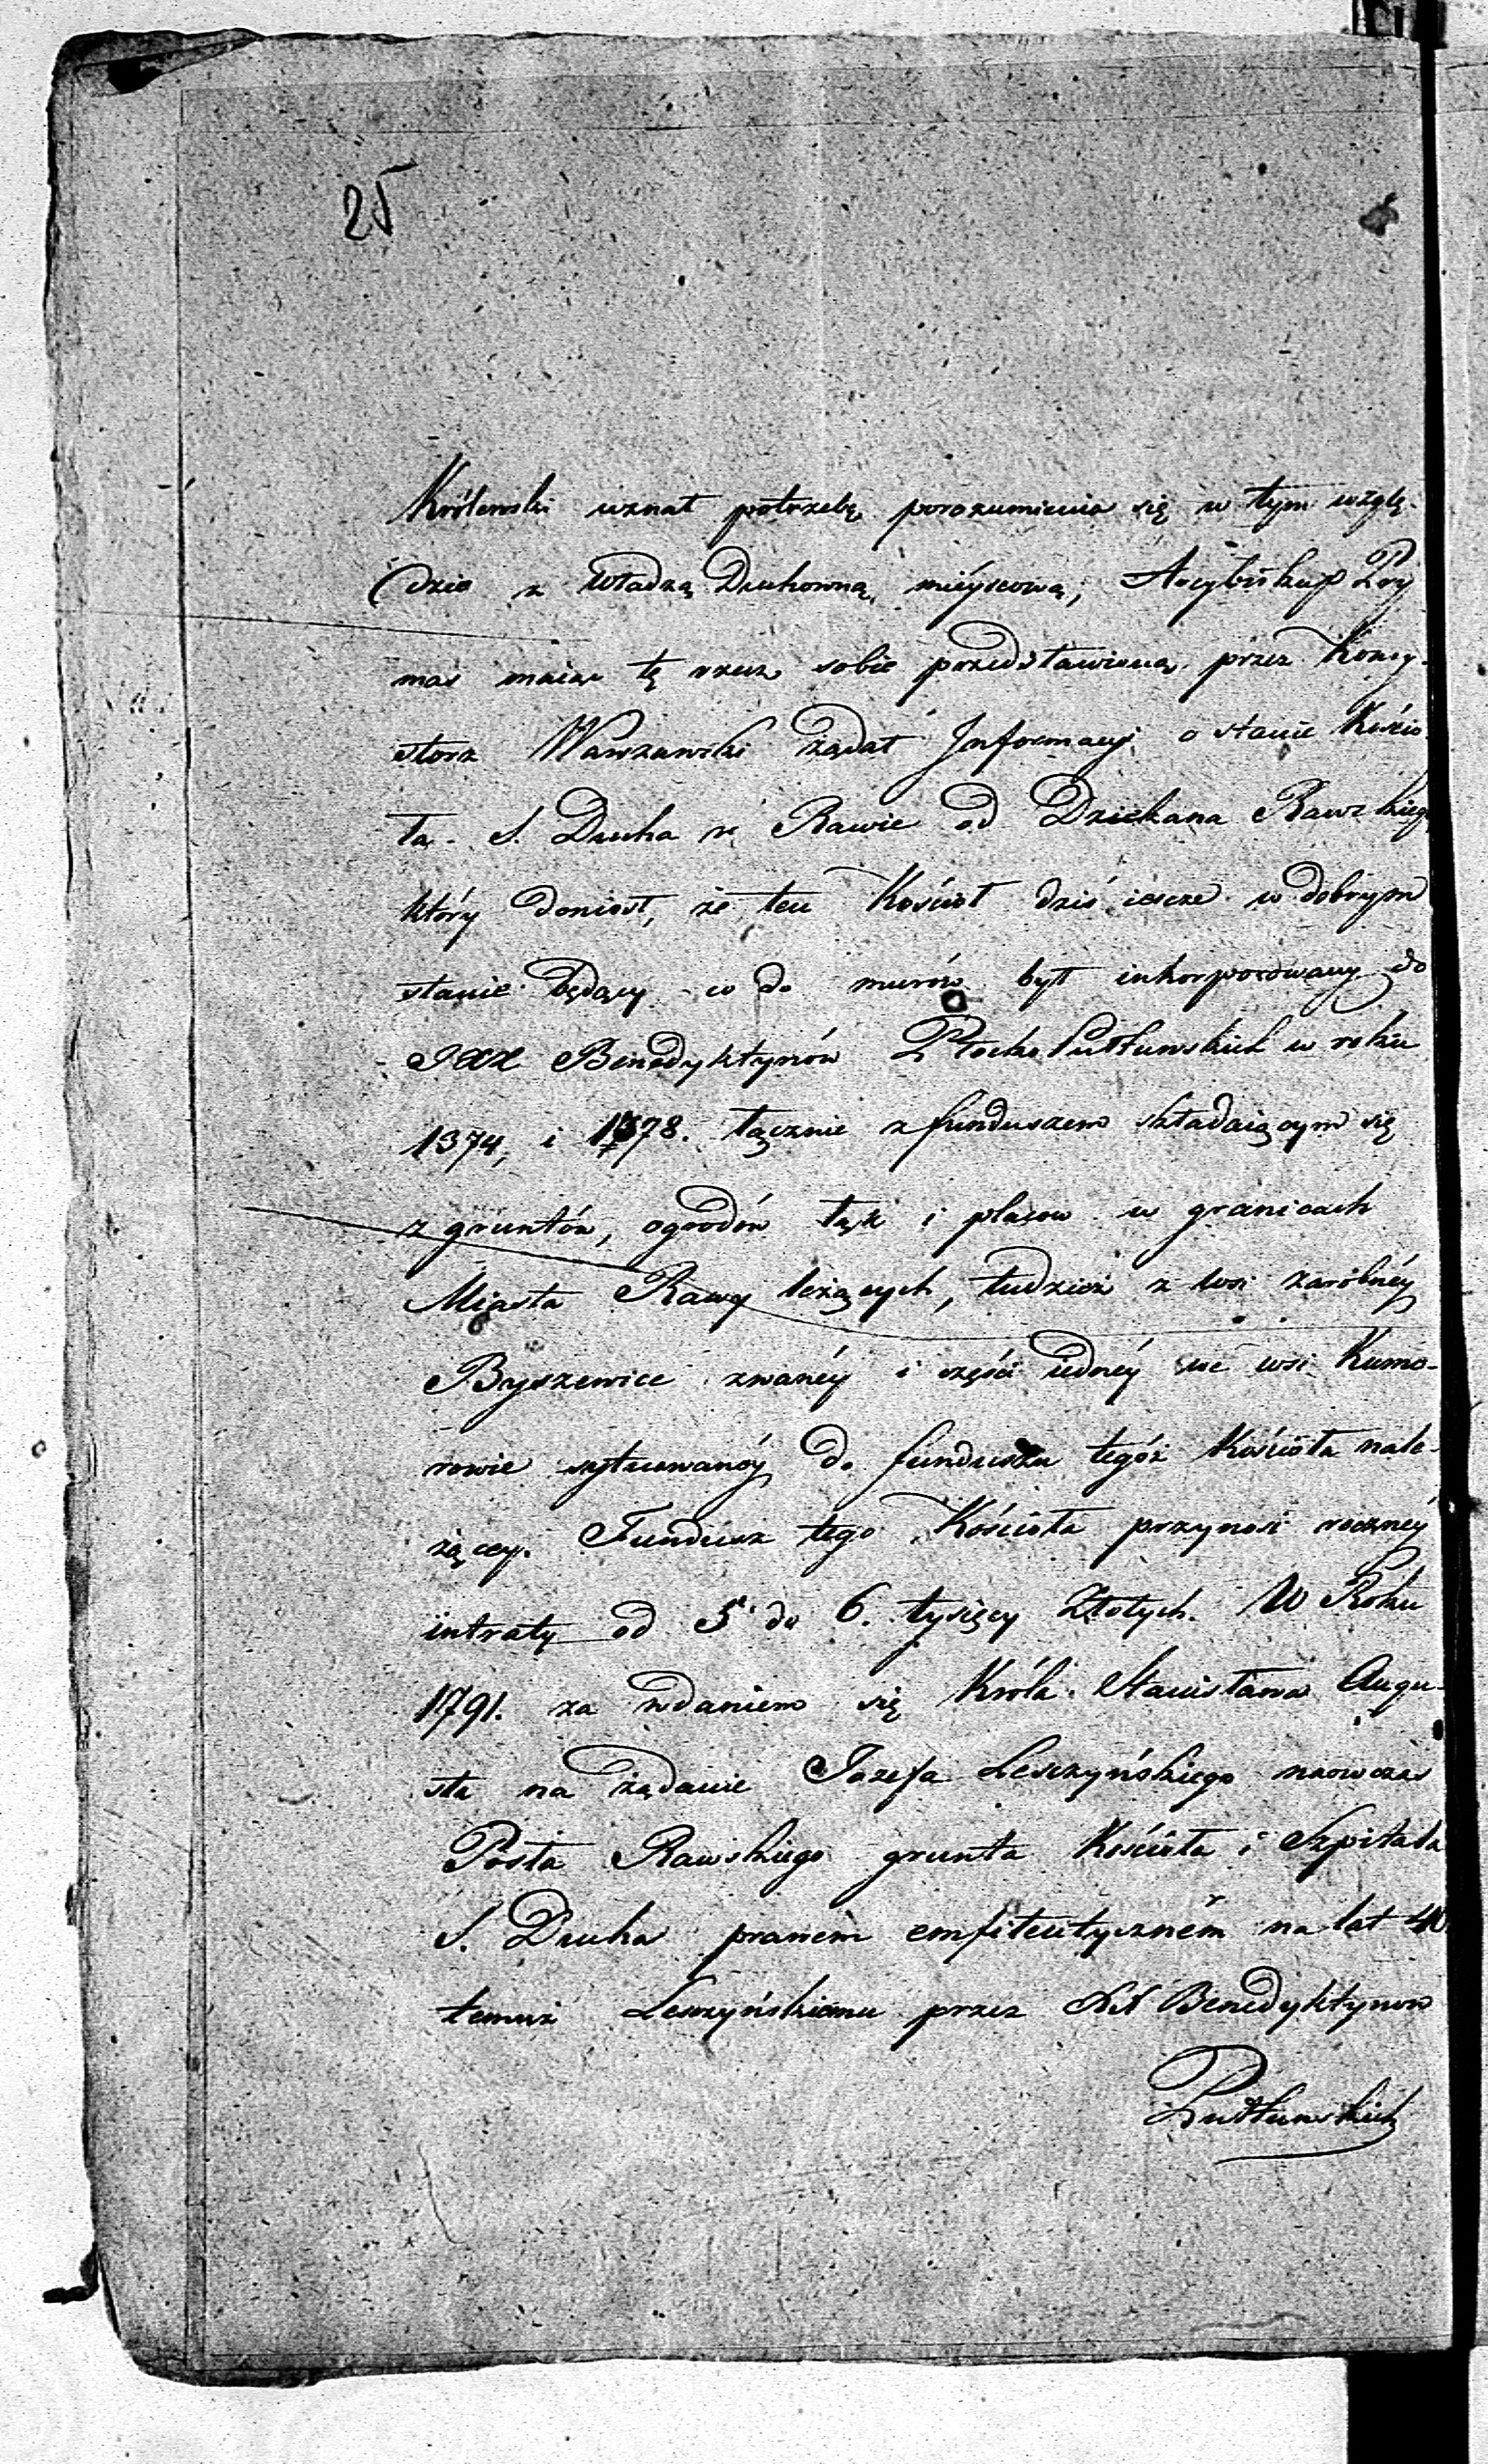 25
Królewski uznał potrzebę porozumienia się w tym wzglę-
dzie z Władzą Duchowną mieyscową, Arcybiskup Pry
mas maiąc tę rzecz sobie przedstawioną przez Konsy-
storz Warszawski żądał Informacyi o stanie Kościo-
ła S. Ducha w Rawie od Dziekana Rawskiego
który doniosł, że ten Kościoł dziś ieszcze w dobrym
stanie będący co do murów był inkorporowany do
XX Benedyktynów Płocko Pułtuskich w roku
1374, i 1378. łącznie z funduszem składaiącym się
z gruntów, ogrodów łąk i placow w granicach
Miasta Rawy leżących, tudzież z wsi zarobnéy
Byszewice zwanéy i części iednéy we wsi Kumo-
rowie sytuowanéy do funduszu tegoż Kościoła nale-
żący. Fundusz tego Kościoła przynosi rocznéy
intraty od 5 do 6. tysięcy Złotych. W Roku
1791. za wdaniem się Króla Stanisława Augu-
sta na żądanie Jozefa Leszczyńskiego naowczas
Posła Rawskiego grunta Kościoła i Szpitala
S. Ducha prawem emfiteutyczném na lat 40
temuż Leszczyńskiemu przez XX Benedyktynow
Pułtuskich